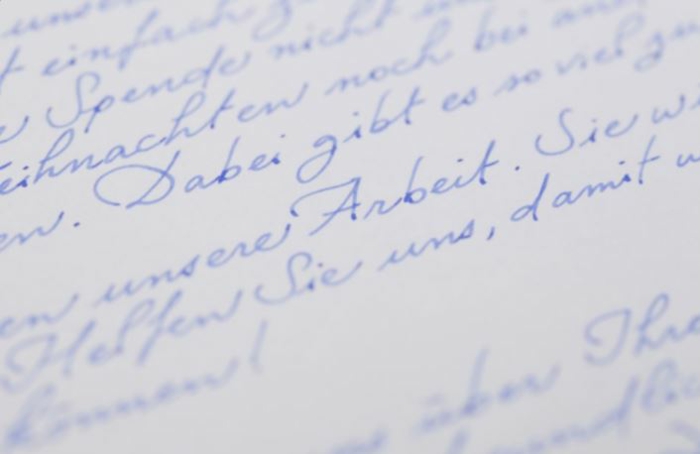 einfach
Spende nicht
Weihnachten noch bei
en. Dabei gibt es so viel zu
en unsere Arbeit. Sie wi
Helfen Sie uns, damit w
können!
über Ihre